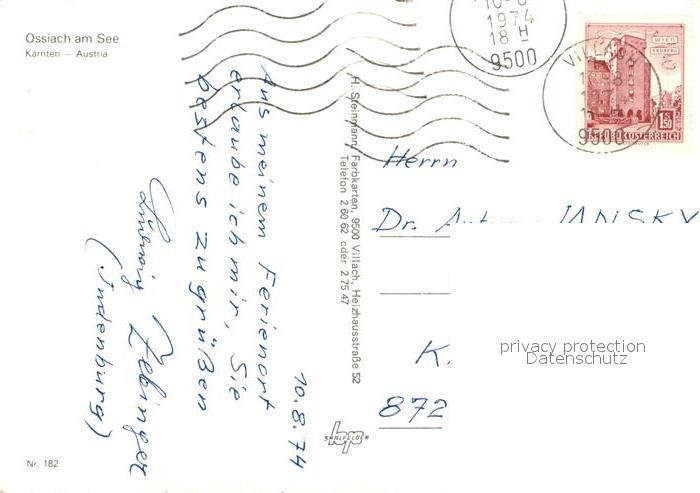 Ossiach am See
Kärnten – Austria
10.8.74
Aus meinem Ferienort
erlaube ich mir, Sie
bestens zu grüßen
Zebinger
(Judenburg)
Nr. 182
H. Steinmann, Farbkarten, 9500 Villach, Heizhausstraße 52
Telefon 2 60 62 oder 2 75 47
SAALFELDEN
1974
18 H
9500
VILLACH
9500
WIEN
ERDBERG
1.50
REPUBLIK ÖSTERREICH
Herrn
Dr.
K.
872
privacy protection
Datenschutz